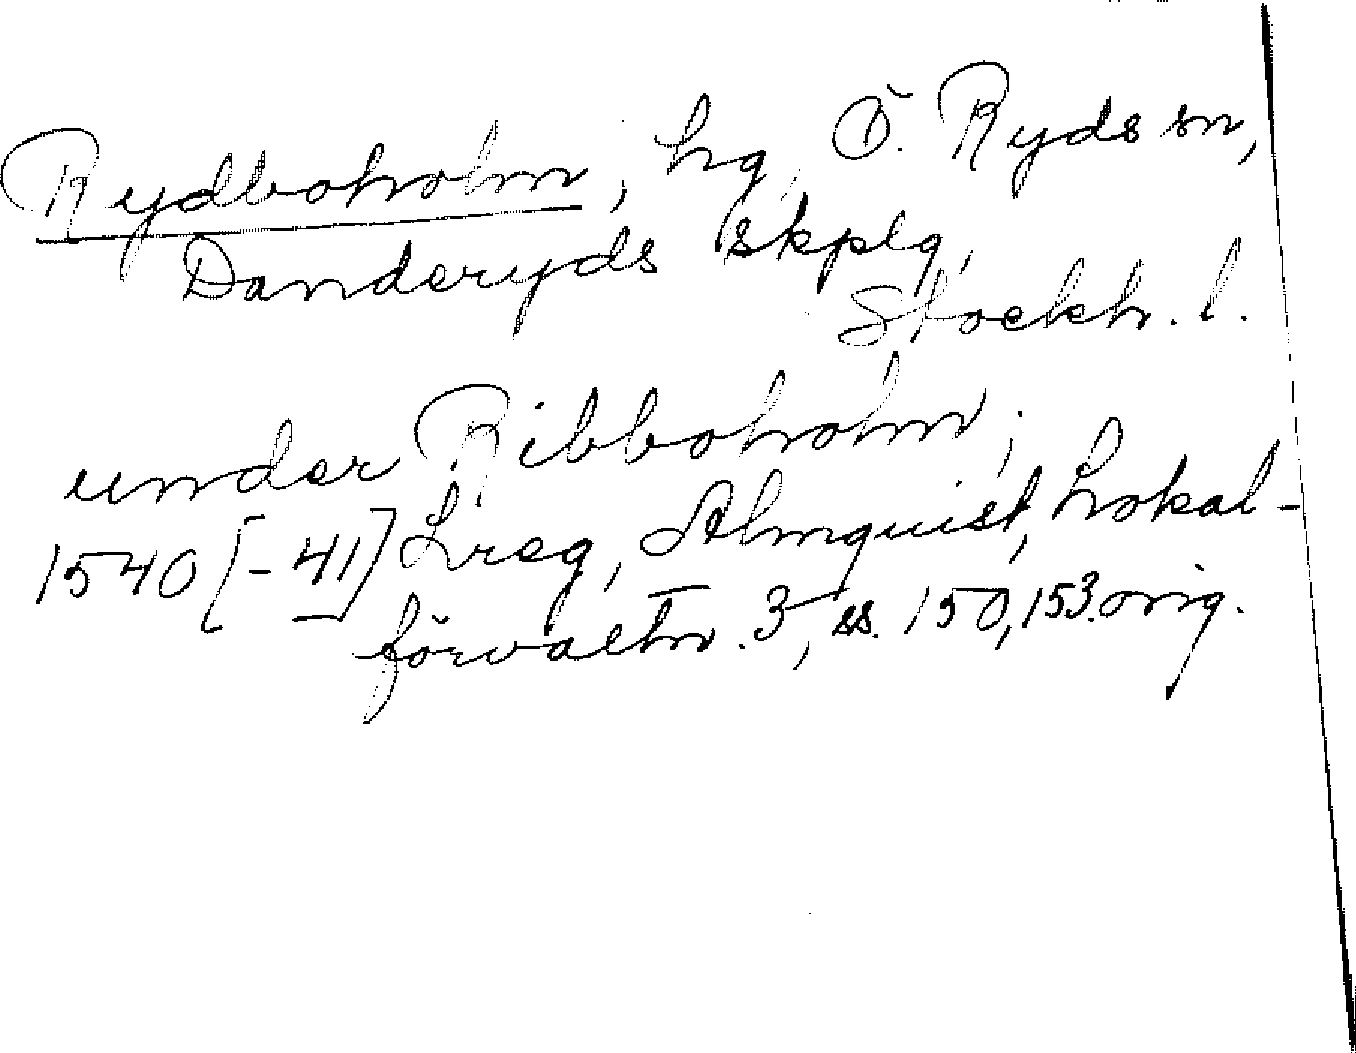 Rydboholm, hg, Ö. Ryds sn,
Danderyds skplg,
Stockh. l.
under Ribboholm;
1540 [-41] Lreg, Almquist, Lokal-
förvaltn. 3, ss. 150, 153. orig.